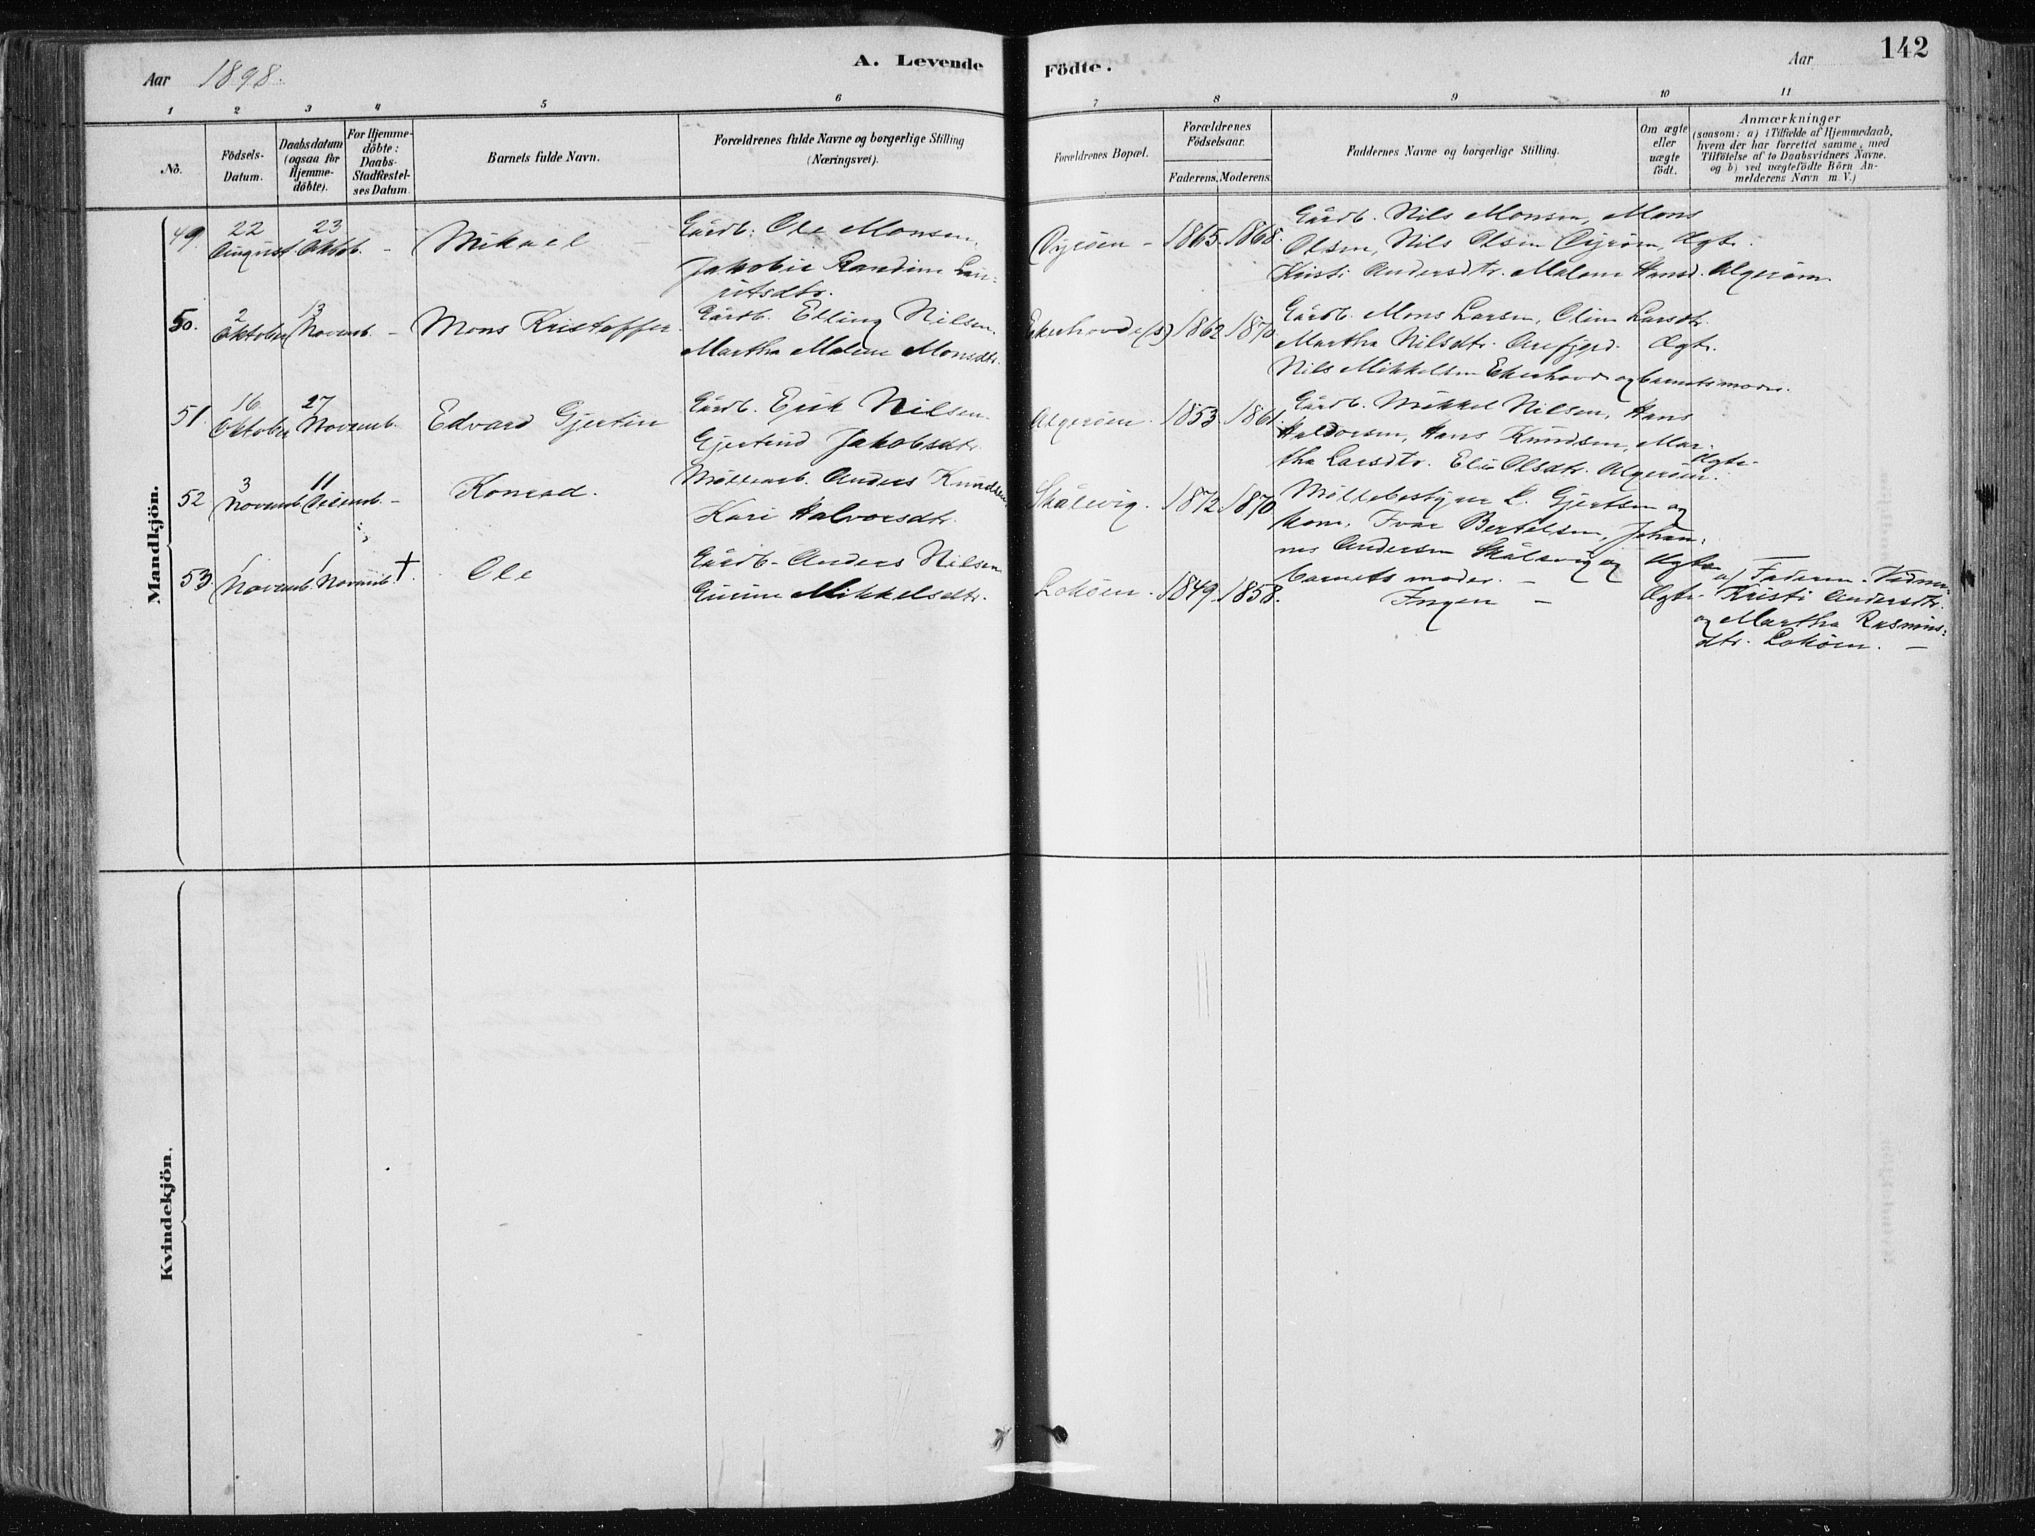 Aar 1898.
A. Levende
Födte.
Aar
142
1 2 3 4 5 6 7 8 9 10 11
No.
Födsels-
Datum.
Daabsdatum
(ogsaa for
Hjemme-
döbte).
For Hjemme-
döbte:
Daabs-
Stadfæstel-
ses Datum.
Barnets fulde Navn.
Forældrenes fulde Navne og borgerlige Stilling
(Næringsvei).
Forældrenes Bopæl.
Forældrenes
Födselsaar.
Faderens. Moderens.
Faddernes Navne og borgerlige Stilling.
Om ægte
eller
uægte
født.
Anmærkninger
(saasom: a) i Tilfælde af Hjemmedaab,
hvem der har forrettet samme, med
Tilföielse af to Daabsvidners Navne.
og b) ved uægtefödte Börn An-
melderens Navn m. V.)
Mandkjön.
49. 22 August 23 Oktob. - Mikael -
Gårdb. Ole Monsen.
Jakobie Randine Lau-
ritsdtr.
1865. 1868.
Gårdb. Nils Monsen, Mons
Olsen, Nils Olsen Ægte.
Kristi Andersdtr. Malene Hansd. Algerøen.
50. 2 Oktober 13 Novemb. - Mons Kristoffer.
Gårdb. Elling Nilsen.
Martha Malene Monsdtr.
Ekerhovde (s) 1862 1870
Gårdb. Mons Larsen, Oline Larsdtr.
Martha Nilsdtr. Arefjord. Ægte.
Nils Mikkelsen Ekerhovde og barnets moder.
51. 16 Oktober 27 Novemb. Edvard Gjertin
Gårdb. Erik Nilsen.
Gjertrud Jakobsdtr.
Algerøen. 1853. 1861.
Gårdb. Mikkel Nilsen, Hans
Haldorsen, Hans Knudsen, Mar-
tha Larsdtr. Eli Olsdtr. Algerøen. Ægte.
52 3 Novemb. 11 Desemb. - Konrad.
Møllearb. Anders Knudsen,
Kari Halvorsdtr.
Skålevig. 1872. 1870
Møllebestyrer L. Gjertsen og
kone, Ivar Bertelsen, Johan-
nes Andersen Skålevig og Ægte
barnets moder. -
53. 1 Novemb. 1 Novemb. †. Ole
Gårdb. Anders Nilsen
Gurine Mikkelsdtr.
Lokøen. 1849. 1858.
Ingen -
Ægte.
a) Faderen. Vidner
Kristi Andersdtr.
og Martha Rasmus-
dtr. Lokøen. -
Kvindekjön.